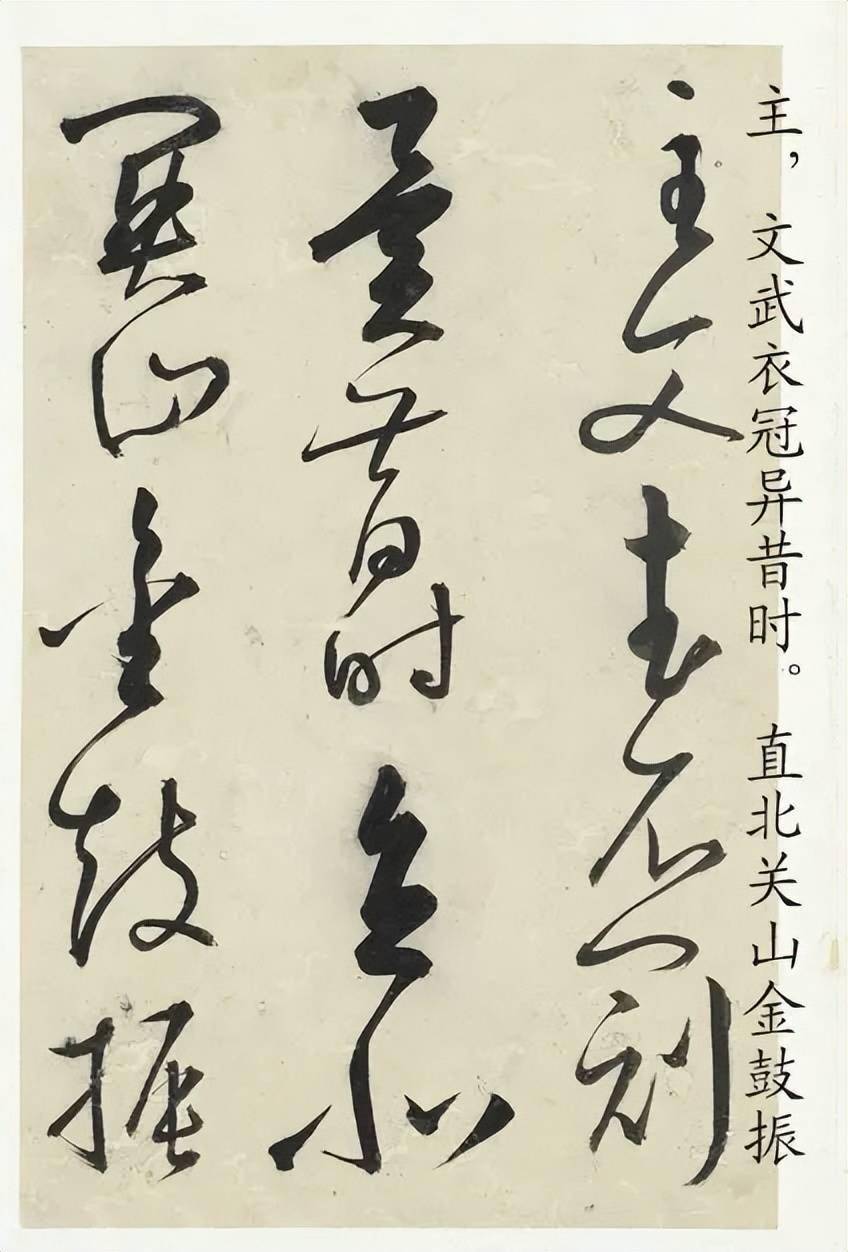 主，文武衣冠异昔时。直北关山金鼓振
主文武衣冠
異昔时直北
關山金鼓振